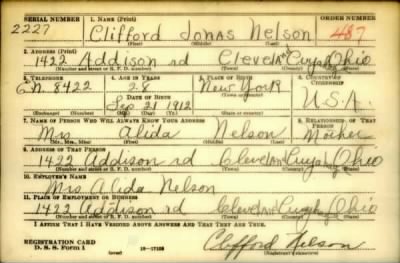 SERIAL NUMBER 1. NAME (Print) ORDER NUMBER
2227 Clifford Jonas Nelson 487
(First) (Middle) (Last)
2. ADDRESS (Print)
1422 Addison rd Cleveland Cuyh Ohio
(Number and street or R. F. D. number) (Town) (County) (State)
3. TELEPHONE 4. AGE IN YEARS 5. PLACE OF BIRTH 6. COUNTRY OF CITIZENSHIP
En. 8422 28 New York
DATE OF BIRTH (Town or county)
Sep 21 1912 U.S.A.
(Exchange) (Number) (Mo.) (Day) (Yr.) (State or country)
7. NAME OF PERSON WHO WILL ALWAYS KNOW YOUR ADDRESS 8. RELATIONSHIP OF THAT PERSON
Mrs Alida Nelson Mother
(Mr., Mrs., Miss) (First) (Middle) (Last)
9. ADDRESS OF THAT PERSON
1422 Addison rd Cleveland Cuyh Ohio
(Number and street or R. F. D. number) (Town) (County) (State)
10. EMPLOYER'S NAME
Mrs Alida Nelson
11. PLACE OF EMPLOYMENT OR BUSINESS
1422 Addison rd Cleveland Cuyh Ohio
(Number and street or R. F. D. number) (Town) (County) (State)
I AFFIRM THAT I HAVE VERIFIED ABOVE ANSWERS AND THAT THEY ARE TRUE.
REGISTRATION CARD
D. S. S. Form 1 (over) Clifford Nelson
(Registrant's signature)